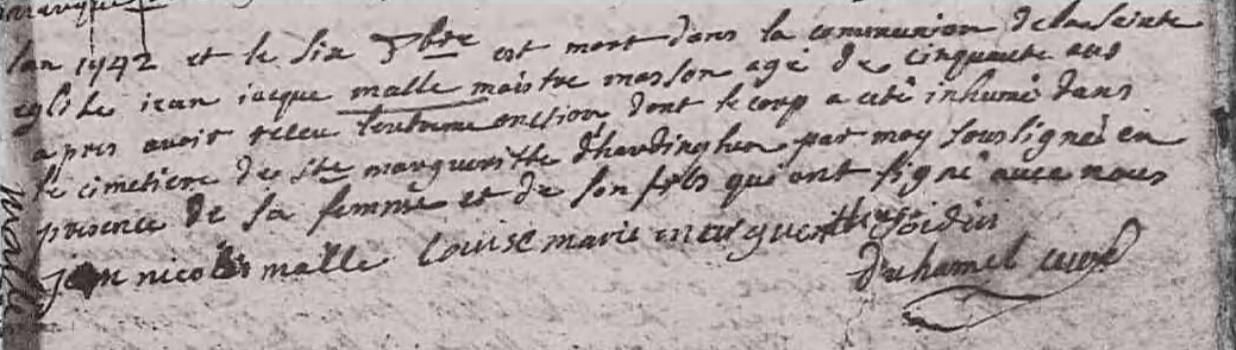 lan 1742 et le six 7bre est mort dans la communion de la sainte
eglise iean iacque malle maistre masson agé de cinquante ans
apres avoir receu lextreme onction dont le corp a eté inhumé dans
le cimetiere de ste margueritte d'hardinghen par moy soussigné en
presence de sa femme et de son fils qui ont signé avec nous
jean nicolas malle louise marie margueritte
duhamel curé
malle